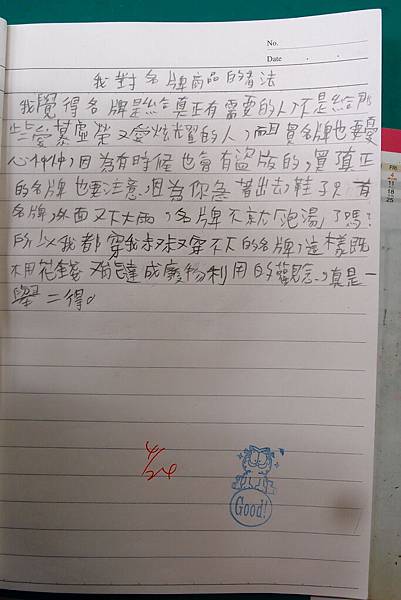 No.
Date
我對名牌商品的看法
我覺得名牌是給真正有需要的人,不是給那
些愛慕虛榮又愛炫耀的人,而且買名牌也要憂
心忡忡,因為有時候也會有盜版的,買真正
的名牌也要注意,因為你急著出去,鞋子只有
名牌,外面又下大雨,名牌不就泡湯了嗎?
所以我都穿我叔叔穿不下的名牌,這樣既
不用花錢又能達成廢物利用的觀念,真是一
舉二得。
4/24
Good!
FRI
4
11
18
25